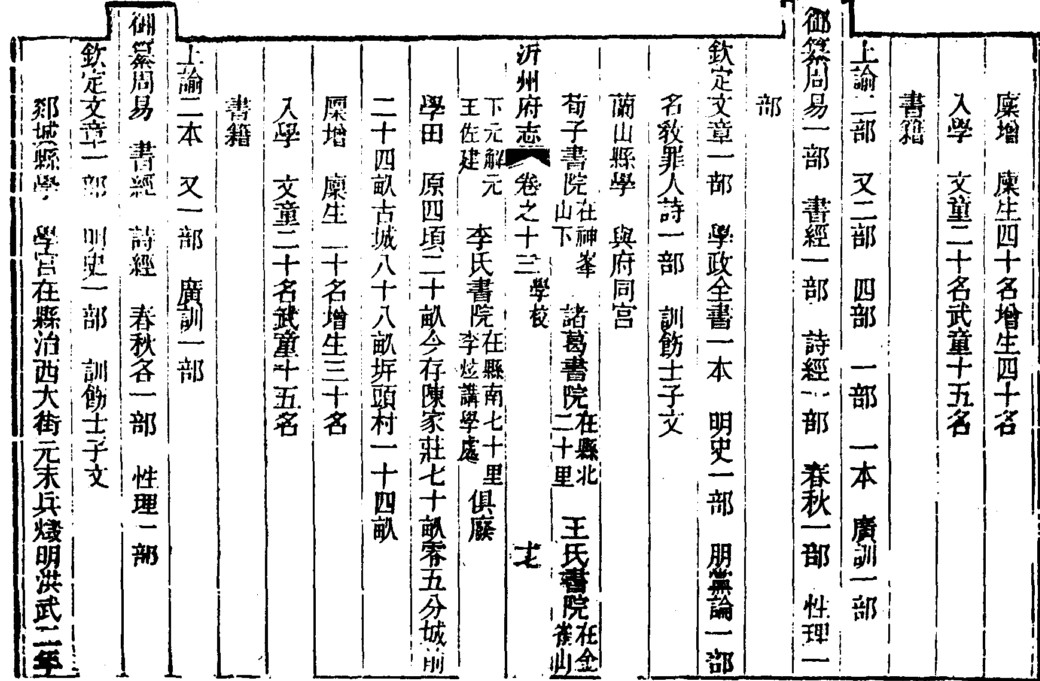 廩增　廩生四十名增生四十名
入學　文童二十名武童十五名
書籍
上諭二部　又二部　四部　一部　一本　廣訓一部
御纂周易一部　書經一部　詩經一部　春秋一部　性理一
部
欽定文章一部　學政全書一本　明史一部　朋黨論一部
名敎罪人詩一部　訓飭士子文
蘭山縣學　與府同宮
荀子書院在神峯山下　諸葛書院在縣北二十里　王氏書院在金雀山
沂州府志　卷之十三　學校　
下元解元王佐建　李氏書院在縣南七十里李炫講學處　俱廢
學田　原四頃二十畝今存陳家莊七十畝零五分城前
二十四畝古城八十八畝坊頭村一十四畝
廩增　廩生二十名增生三十名
入學　文童二十名武童十五名
書籍
上諭二本　又一部　廣訓一部
御纂周易　書經　詩經　春秋各一部　性理一部
欽定文章一部　明史一部　訓飭士子文
郯城縣學　學宮在縣治西大街元末兵燬明洪武二年